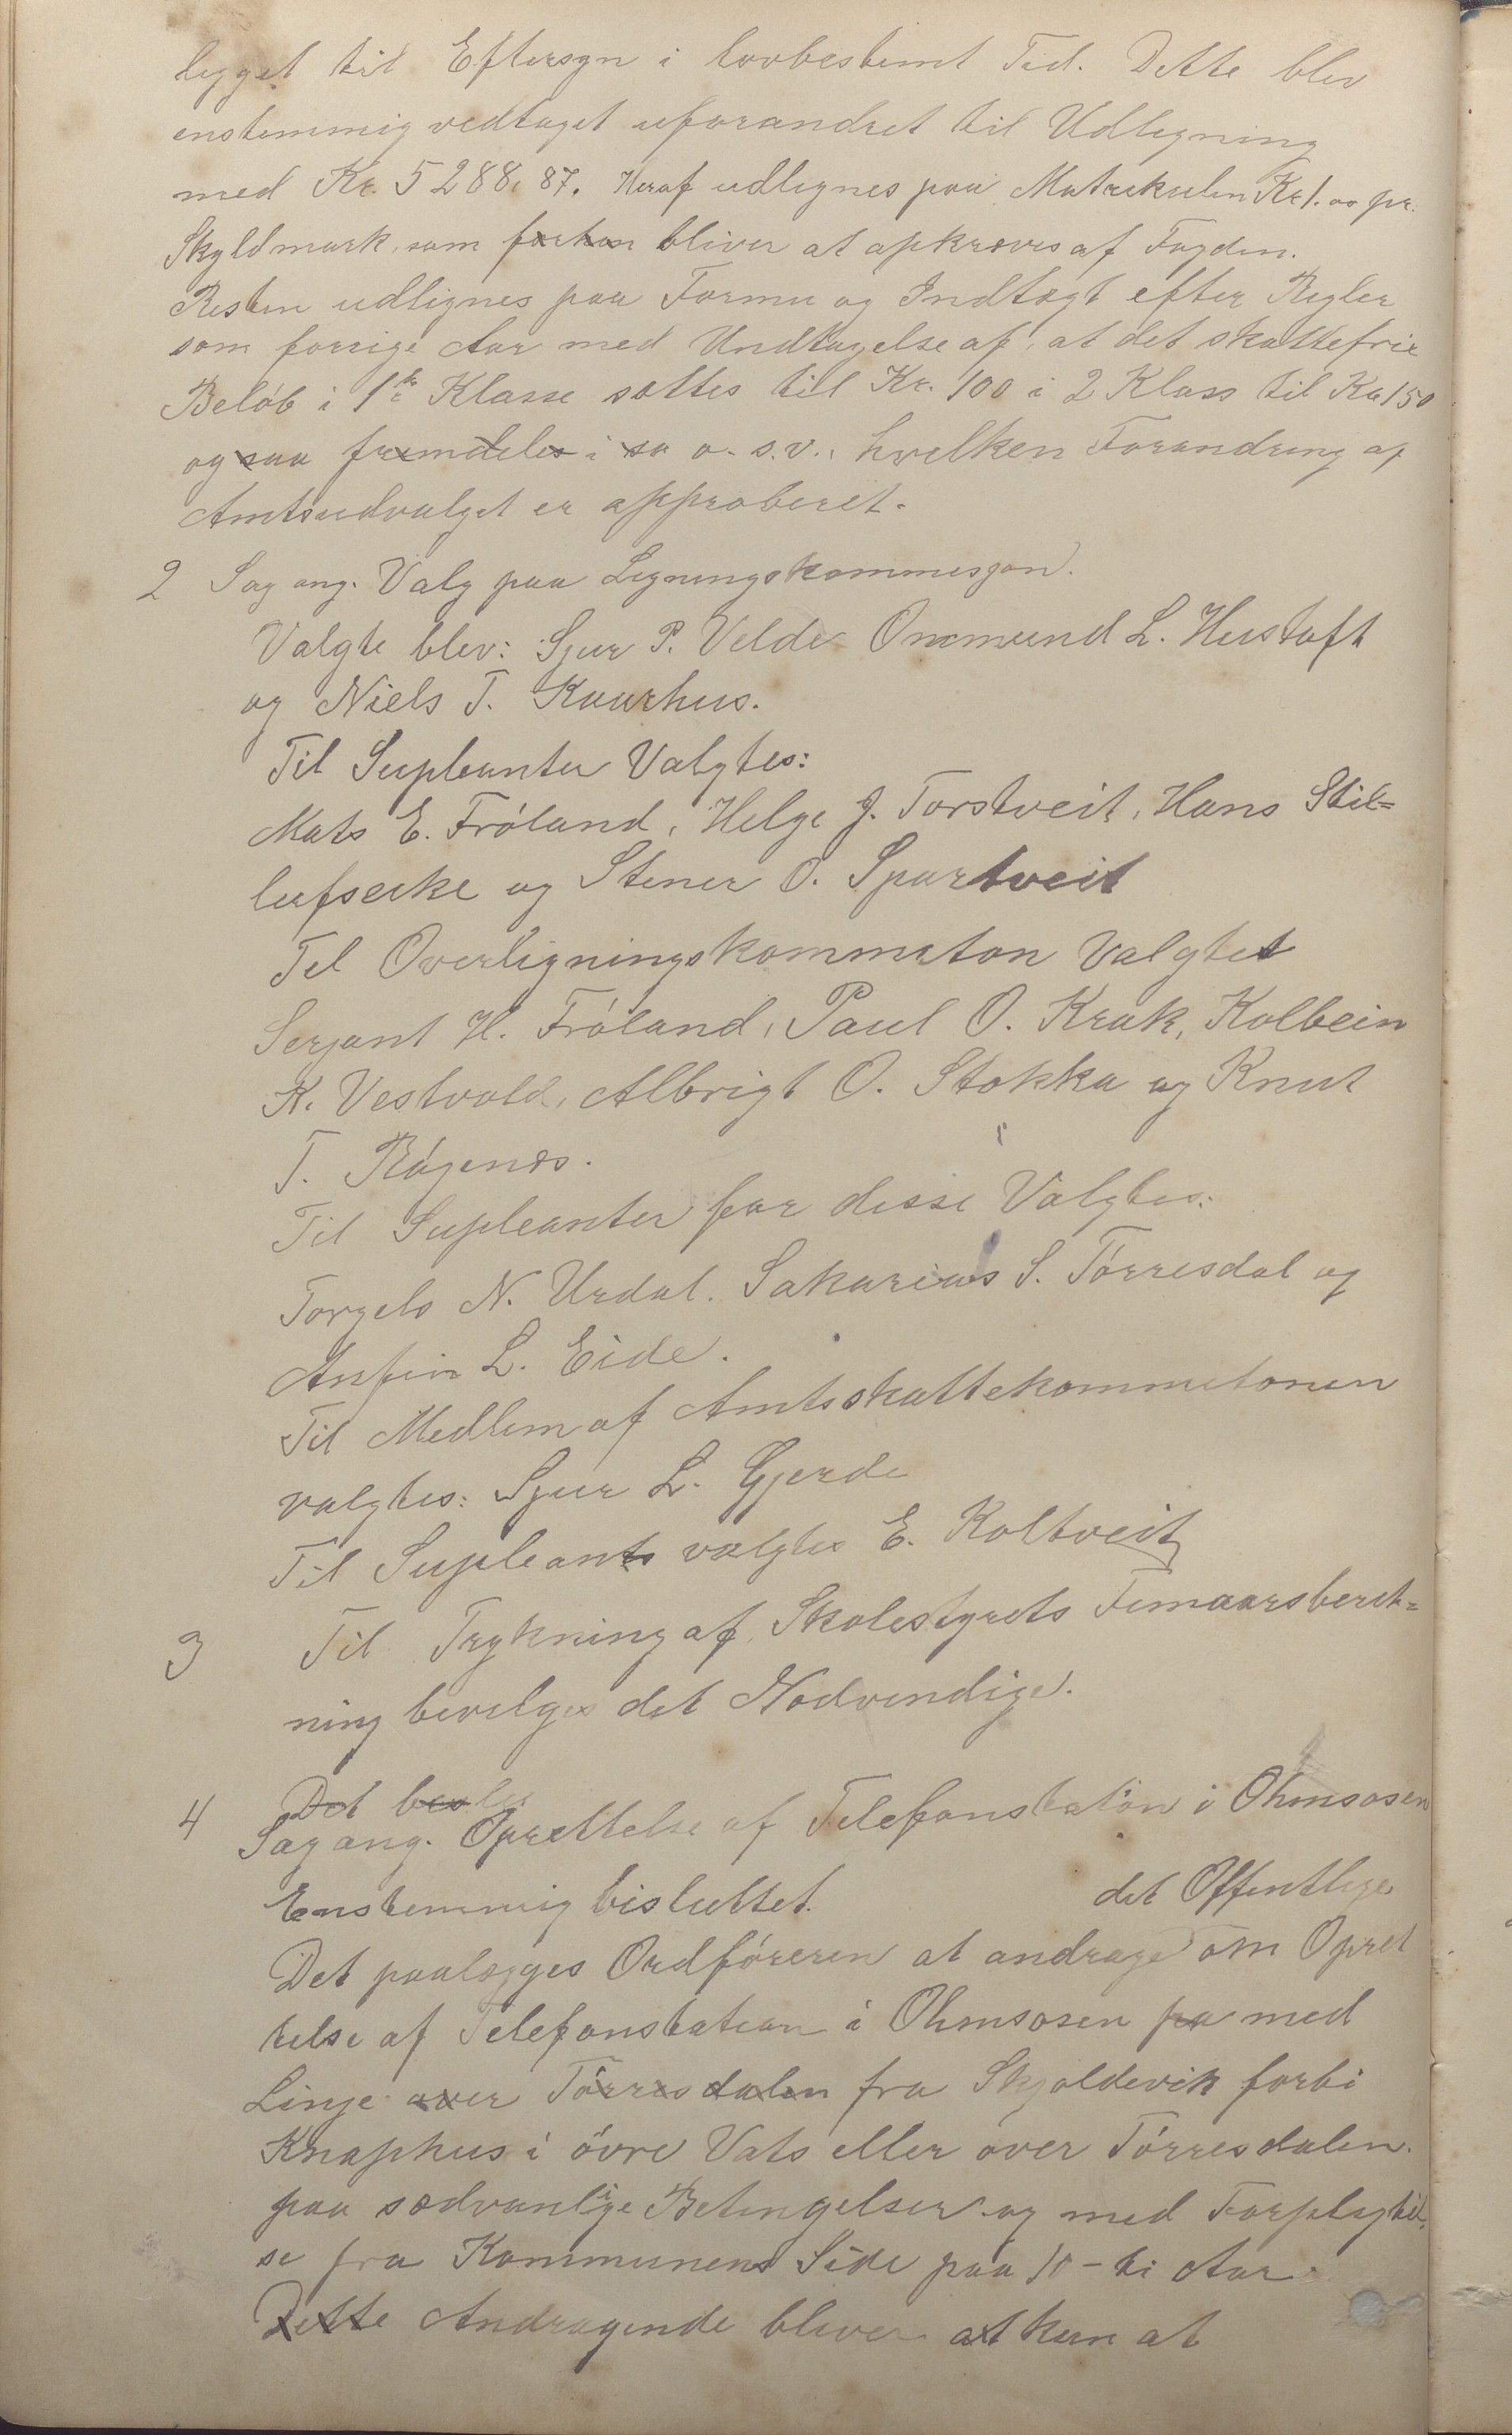 legget til Eftersyn i lovbestemt Tid. Dette blev
enstemmig vedtaget uforandret til Udligning
med Kr. 5288,87. Heraf udlignes paa Matrekulen Kr 1.00 pr.
Skyldmark, som forten bliver at opkræves af Fogden.
Resten udlignes paa Formu og Indtægt efter Regler
som forrige Aar med Undtagelse af, at det skattefrie
Beløb i 1ste Klasse sættes till Kr. 100 i 2 Klass til Kr 150
og saa fremdeles i sa o. s. v., hvelken Forandring af
Amtsudvalget er approberet.
2 Sag ang. Valg paa Legningskommesjon.
Valgte blev: Sjur P. Velde Ommund L. Hustoft
og Niels T. Kaarhus.
Til Supleanter Valgtes:
Mats E. Fróland, Helge J. Torstveit, Hans Stil=
lufseike og Stener O. Spartveit
Tel Overligningskommeton Valgtet
Serjant H. Fróland, Paul O. Krak, Kolbein
K. Vestvold, Albrigt O. Stokka og Knut
T. Rógenæs.
Til Supleanter for disse Valgtes:
Torgels N. Urdal. Sakarias S. Tórresdal og
Anfin L. Eide.
Til Medlem af Amtsskattekommetonen
valgtes: Sjur L. Gjerde
Til Supleants valgtes E. Koltveit
3 Til Trykning af Skolestyrets Femaarsberet=
ning bevelges det Nodvendige.
Det besles
4 Sag ang. Oprettelse af Telefonstation i Ohmsosen
Enstemmig besluttet.
det Offentlege
Det paalægges Ordfóreren at andrage om Opret
telse af Telefonstation i Ohmsosen pa med
Linje over Tórresdalen fra Skjoldevik forbi
Knaphus i óvre Vats eller over Tórresdalen.
paa sædvanlige Betingelser og med Forplegtel,
se fra Kommunens Side paa 10 - ti Aar
Dette Andragende bliver at kun at